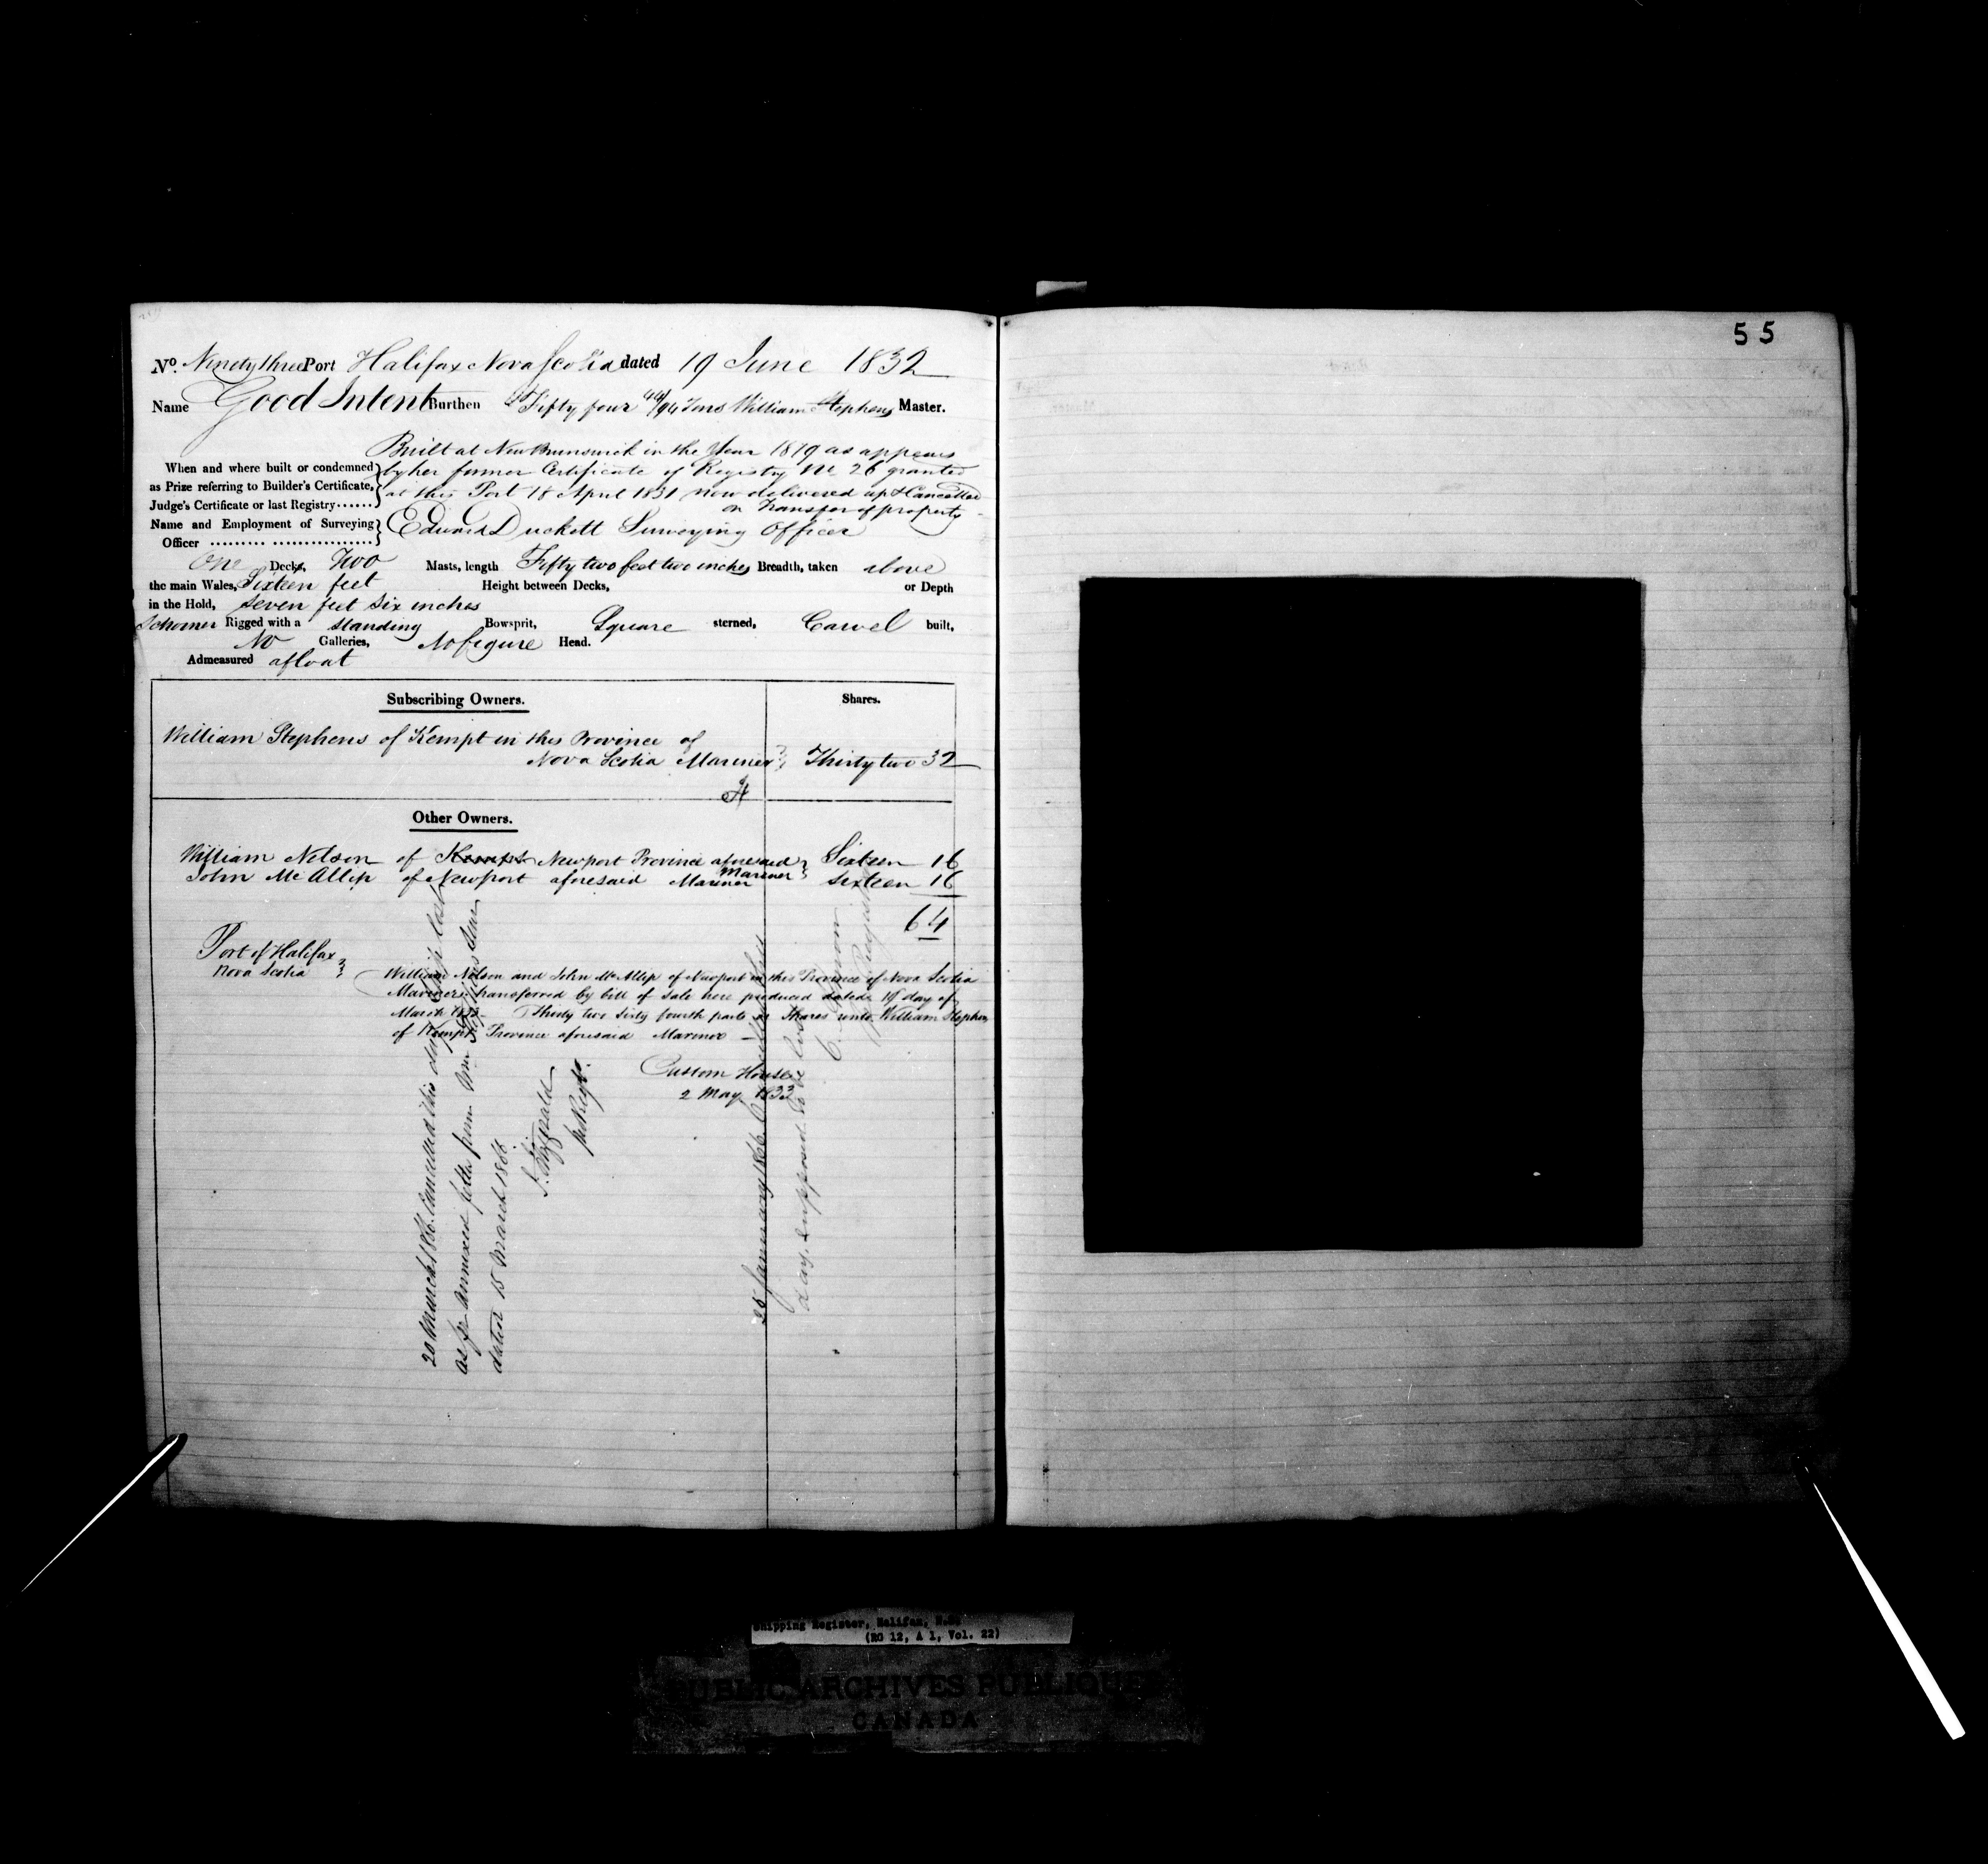 55
No. Ninety three Port Halifax Nova Scotia dated 19 June 1832
Name Good Intent Burthen Fifty four 44/94 Tons William Stephens Master.
Built at New Brunswick in the Year 1819 as appears
When and where built or condemned by her former Certificate of Registry No 26 granted
as Prize referring to Builder's Certificate, at this Port 18 April 1831 now delivered up & Cancelled
Judge's Certificate or last Registry...... on Transfer of property
Name and Employment of Surveying Edward Duckett Surveying Officer
Officer
One Decks, Two Masts, length Fifty two feet two inches Breadth, taken above
the main Wales, Sixteen feet Height between Decks, or Depth
in the Hold, Seven feet six inches
Schooner Rigged with a standing Bowsprit, Square sterned, Carvel built,
No Galleries, No figure Head.
Admeasured afloat
Subscribing Owners. Shares.
William Stephens of Kempt in this Province of
Nova Scotia Mariner Thirty two 32
Other Owners.
William Nelson of Kempt Newport Province aforesaid Sixteen 16
Mariner
John McAllep of Newport aforesaid Mariner Sixteen 16
64
Port of Halifax
Nova Scotia
William Nelson and John McAllep of Newport in this Province of Nova Scotia
Mariners transferred by bill of Sale here produced dated day of
March Thirty two Sixty fourth parts or Shares unto William Stephens
of Kempt Province aforesaid Mariner
Custom House
2 May 1833
20 March 1866. Cancelled this day Ship lost
as pr annexed letter from Wm
dated 15 March 1866
25 January 1866 Cancelled this
day supposed to be lost
Shipping Register, Halifax, N.S.
(RG 12, A 1, Vol. 22)
PUBLIC ARCHIVES PUBLIQUES
CANADA